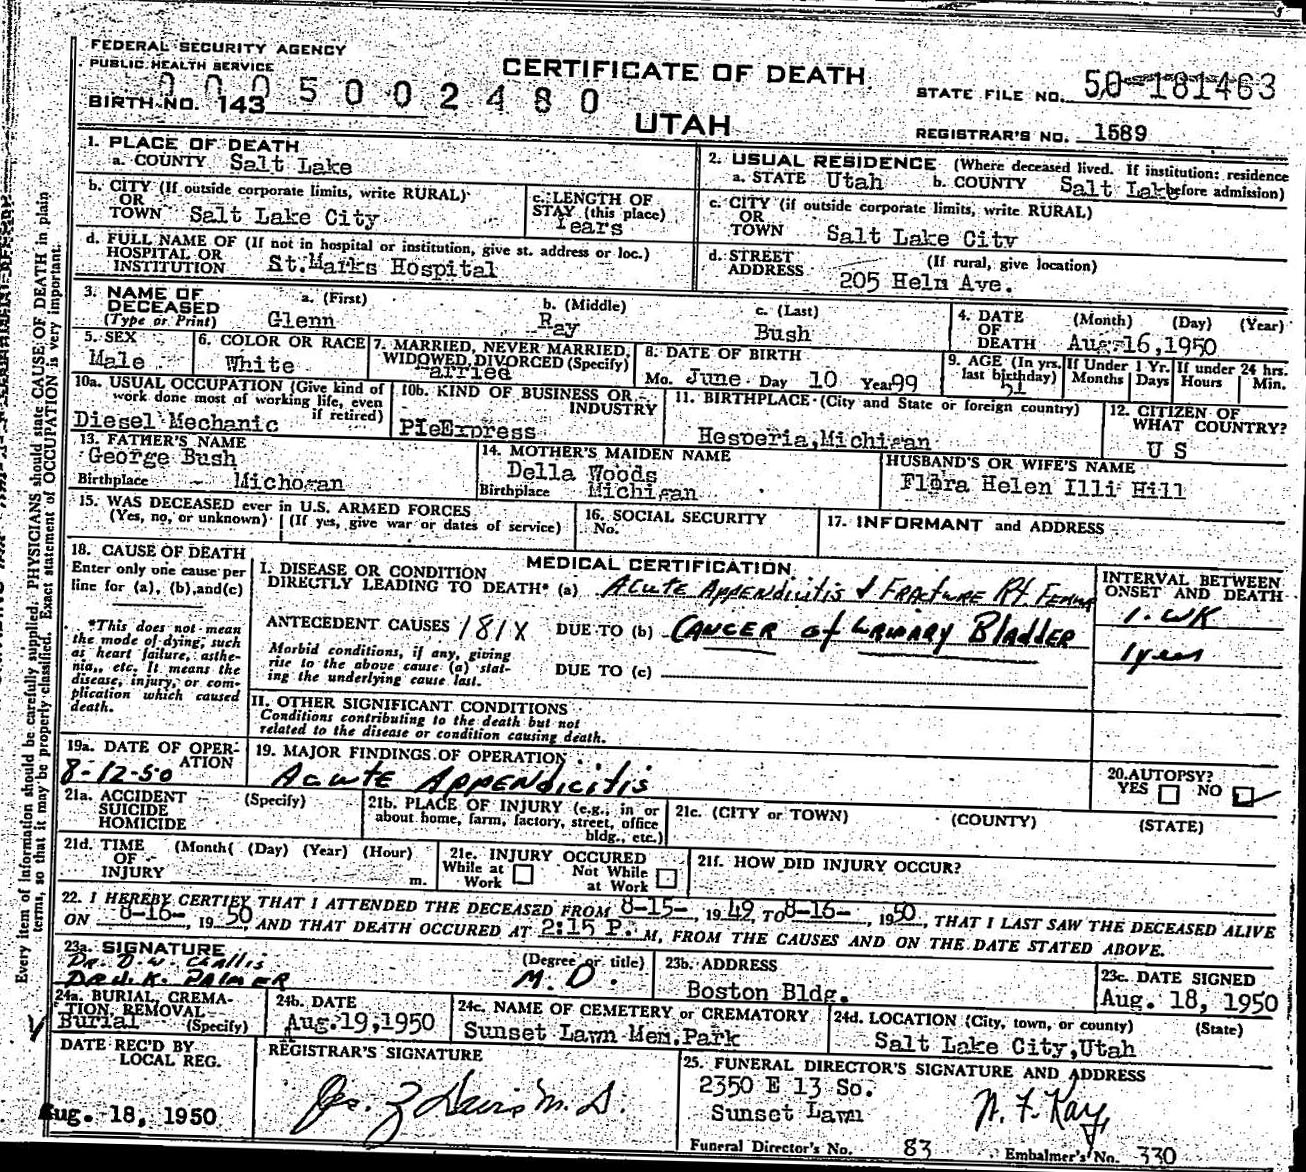 FEDERAL SECURITY AGENCY
PUBLIC HEALTH SERVICE
CERTIFICATE OF DEATH
UTAH
0005002480
BIRTH NO. 143
STATE FILE NO. 50-181463
REGISTRAR'S NO. 1589
Every item of information should be carefully supplied. PHYSICIANS should state CAUSE OF DEATH in plain
terms, so that it may be properly classified. Exact statement of OCCUPATION is very important.
1. PLACE OF DEATH
a. COUNTY Salt Lake
2. USUAL RESIDENCE (Where deceased lived. If institution: residence before admission)
a. STATE Utah b. COUNTY Salt Lake
b. CITY (If outside corporate limits, write RURAL)
OR
TOWN Salt Lake City
c. LENGTH OF
STAY (this place)
Years
c. CITY (if outside corporate limits, write RURAL)
OR
TOWN Salt Lake City
d. FULL NAME OF (If not in hospital or institution, give st. address or loc.)
HOSPITAL OR
INSTITUTION St.Marks Hospital
d. STREET (If rural, give location)
ADDRESS 205 Helm Ave.
3. NAME OF
DECEASED
(Type or Print)
a. (First) Glenn
b. (Middle) Ray
c. (Last) Bush
4. DATE (Month) (Day) (Year)
OF
DEATH Aug.16,1950
5. SEX
Male
6. COLOR OR RACE
White
7. MARRIED, NEVER MARRIED,
WIDOWED, DIVORCED (Specify)
arried
8. DATE OF BIRTH
Mo. June Day 10 Year 99
9. AGE (In yrs. last birthday) 51
If Under 1 Yr. Months Days
If under 24 hrs. Hours Min.
10a. USUAL OCCUPATION (Give kind of
work done most of working life, even
if retired)
Diesel Mechanic
10b. KIND OF BUSINESS OR
INDUSTRY
PIeExpress
11. BIRTHPLACE (City and State or foreign country)
Hesperia,Michigan
12. CITIZEN OF
WHAT COUNTRY?
U S
13. FATHER'S NAME
George Bush
Birthplace Michogan
14. MOTHER'S MAIDEN NAME
Della Woods
Birthplace Michigan
HUSBAND'S OR WIFE'S NAME
Flora Helen Illi Hill
15. WAS DECEASED ever in U.S. ARMED FORCES
(Yes, no, or unknown) (If yes, give war or dates of service)
16. SOCIAL SECURITY
No.
17. INFORMANT and ADDRESS
18. CAUSE OF DEATH
Enter only one cause per
line for (a), (b), and (c)
*This does not mean
the mode of dying, such
as heart failure, asthe-
nia, etc. It means the
disease, injury, or com-
plication which caused
death.
MEDICAL CERTIFICATION
I. DISEASE OR CONDITION
DIRECTLY LEADING TO DEATH* (a) Acute Appendicitis & Fracture Rt. Femur
ANTECEDENT CAUSES 181X DUE TO (b) Cancer of Urinary Bladder
Morbid conditions, if any, giving
rise to the above cause (a) stat-
ing the underlying cause last.
DUE TO (c)
INTERVAL BETWEEN
ONSET AND DEATH
1. WK
1 year
II. OTHER SIGNIFICANT CONDITIONS
Conditions contributing to the death but not
related to the disease or condition causing death.
19a. DATE OF OPER-
ATION
8-12-50
19. MAJOR FINDINGS OF OPERATION
Acute Appendicitis
20. AUTOPSY?
YES NO
21a. ACCIDENT (Specify)
SUICIDE
HOMICIDE
21b. PLACE OF INJURY (e.g., in or
about home, farm, factory, street, office
bldg., etc.)
21c. (CITY or TOWN) (COUNTY) (STATE)
21d. TIME (Month) (Day) (Year) (Hour)
OF
INJURY m.
21e. INJURY OCCURED
While at Work Not While at Work
21f. HOW DID INJURY OCCUR?
22. I HEREBY CERTIFY THAT I ATTENDED THE DECEASED FROM 8-15-, 1949, TO 8-16-, 1950, THAT I LAST SAW THE DECEASED ALIVE
ON 8-16-, 1950, AND THAT DEATH OCCURED AT 2:15 P. M, FROM THE CAUSES AND ON THE DATE STATED ABOVE.
23a. SIGNATURE (Degree or title)
Dr. D. W. Challis
Dr. H. K. Palmer M.D.
23b. ADDRESS
Boston Bldg.
23c. DATE SIGNED
Aug. 18, 1950
24a. BURIAL, CREMA-
TION, REMOVAL
Burial (Specify)
24b. DATE
Aug.19,1950
24c. NAME OF CEMETERY or CREMATORY
Sunset Lawn Mem.Park
24d. LOCATION (City, town, or county) (State)
Salt Lake City,Utah
DATE REC'D BY
LOCAL REG.
Aug. 18, 1950
REGISTRAR'S SIGNATURE
Davis M.D.
25. FUNERAL DIRECTOR'S SIGNATURE AND ADDRESS
2350 E 13 So.
Sunset Lawn
N. F. Kay
Funeral Director's No. 83 Embalmer's No. 330